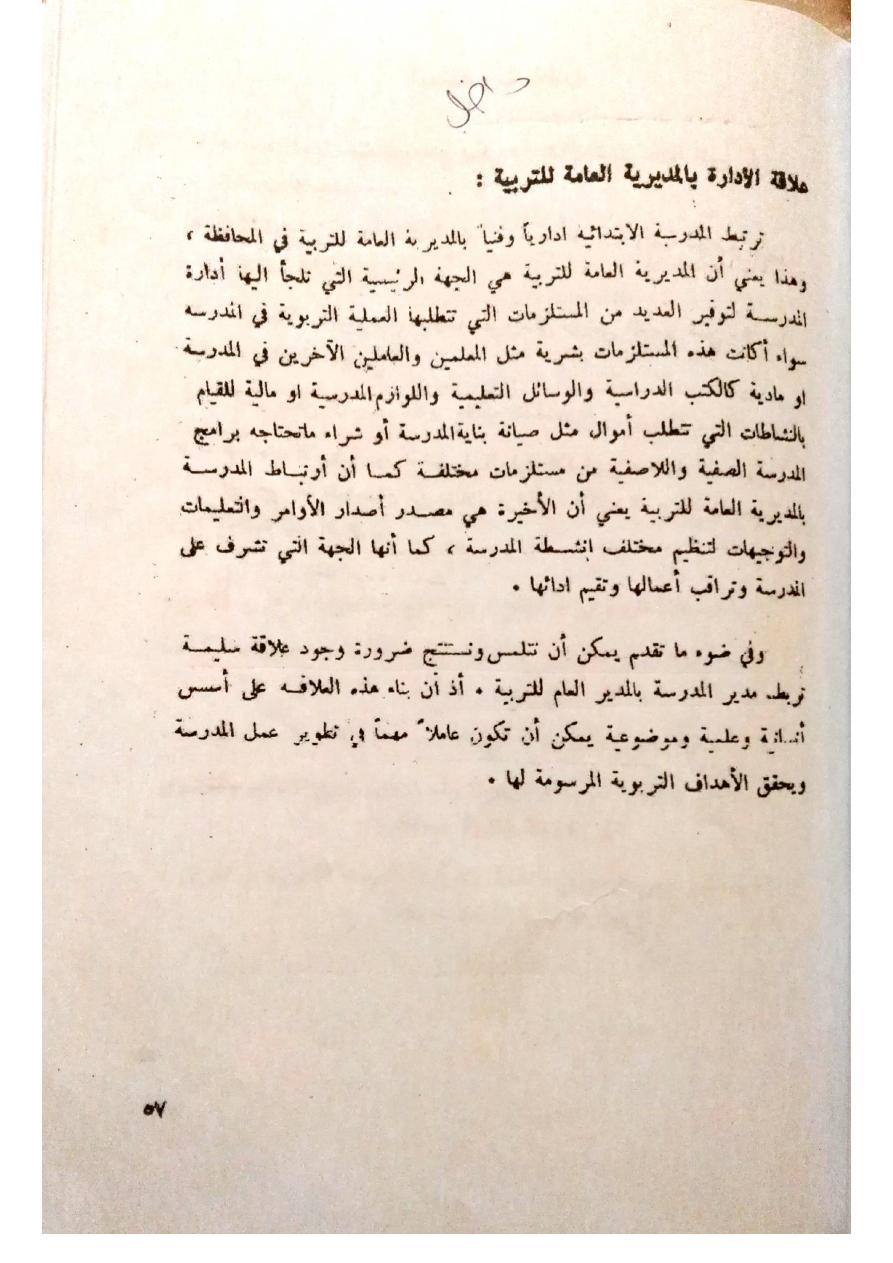 علاقة الأدارة بالمديرية العامة للتربية :
ترتبط المدرسة الابتدائيه ادارياً وفنياً بالمديرية العامة للتربية في المحافظة ،
وهذا يعني أن المديرية العامة للتربية هي الجهة الرئيسية التي تلجأ اليها أدارة
المدرسة لتوفير العديد من المستلزمات التي تتطلبها العملية التربوية في المدرسه
سواء أكانت هذه المستلزمات بشرية مثل المعلمين والعاملين الآخرين في المدرسة
او مادية كالكتب الدراسية والوسائل التعليمية واللوازم المدرسية او مالية للقيام
بالنشاطات التي تتطلب أموال مثل صيانة بناية المدرسة أو شراء ماتحتاجه برامج
المدرسة الصفية واللاصفية من مستلزمات مختلفة كما أن أرتباط المدرسة
بالمديرية العامة للتربية يعني أن الأخيرة هي مصدر أصدار الأوامر والتعليمات
والتوجيهات لتنظيم مختلف انشطة المدرسة ، كما أنها الجهة التي تشرف على
المدرسة وتراقب أعمالها وتقيم ادائها .
وفي ضوء ما تقدم يمكن أن نتلمس ونستنتج ضرورة وجود علاقة سليمة
تربط مدير المدرسة بالمدير العام للتربية . أذ أن بناء هذه العلاقه على أسس
أنسانية وعلمية وموضوعية يمكن أن تكون عاملاً مهماً في تطوير عمل المدرسة
ويحقق الأهداف التربوية المرسومة لها .
٥٧